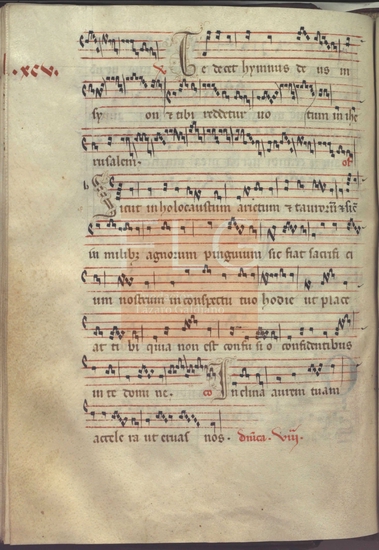 Te decet hymnus de us in
·xcv·
sy on & tibi reddetur uo tum in ihe
rusalem. of
Sicut in holocaustum arietum & tauroꝝ & sic
in milibꝫ agnorum pinguium sic fiat sacrifi ci
um nostrum in conspectu tuo hodie ut place
at ti bi quia non est confu si o confidentibus
in te domi ne. co Inclina aurem tuam
accele ra ut eruas nos. dn̄ica. viij.